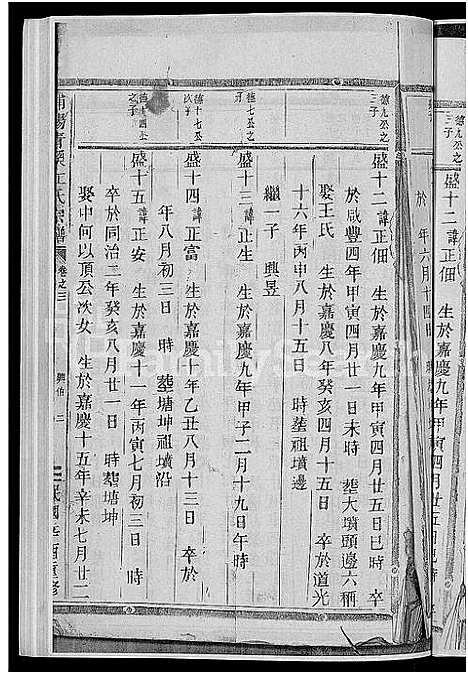 德九公之
三子
盛十二 諱正佃 生於嘉慶九年甲寅四月廿五日巳時 卒
於咸豐四年甲寅四月廿一日未時 塟大墳頭邊六稱
娶王氏 生於嘉慶八年癸亥四月十五日 卒於道光
十六年丙申八月十五日 時塟祖墳邊
繼一子 興昱
德七公之
盛十三 諱正生 生於嘉慶九年甲子二月十九日午時
德十七公之
次子
盛十四 諱正富 生於嘉慶十年乙丑八月十三日 卒於
年八月初三日 時 塟塘坤祖墳沿
德十四公
之子
盛十五 諱正安 生於嘉慶十一年丙寅七月初三日 時
卒於同治二年癸亥八月廿一日 時塟塘坤
娶中何以頂公次女 生於嘉慶十五年辛未七月廿二
氏宗譜 卷之三 興伯 二
德九公之
三子
盛十二 諱正佃 生於嘉慶九年甲寅四月廿五日巳時
於 年六月十四日